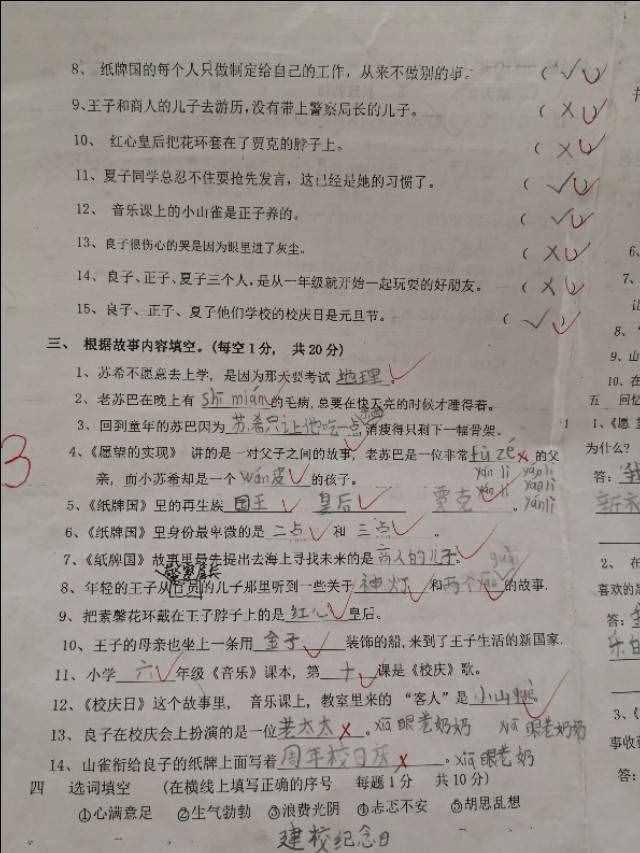 8、 纸牌国的每个人只做制定给自己的工作，从来不做别的事。 （ ✓ ）
9、王子和商人的儿子去游历，没有带上警察局长的儿子。 （ × ）
10、 红心皇后把花环套在了贾克的脖子上。 （ × ）
11、夏子同学总忍不住要抢先发言，这已经是她的习惯了。 （ ✓ ）
12、 音乐课上的小山雀是正子养的。 （ ✓ ）
13、良子很伤心的哭是因为眼里进了灰尘。 （ × ）
14、良子、正子、夏子三个人，是从一年级就开始一起玩耍的好朋友。 （ × ）
15、良子、正子、夏子他们学校的校庆日是元旦节。 （ ✓ ）
三、 根据故事内容填空。（每空1分， 共20分）
1、苏希不愿意去上学，是因为那天要考试 地理 。
2、老苏巴在晚上有 shī mián 的毛病,总要在快天亮的时候才睡得着。
3、回到童年的苏巴因为 苏希只让他吃一点 消瘦得只剩下一幅骨架。
4、《愿望的实现》 讲的是一对父子之间的故事，老苏巴是一位非常 fù zé 的父
亲，而小苏希却是一个 wán皮 的孩子。
5、《纸牌国》里的再生族 国王 皇后 贾克 。
yán lì yán lì
yán lì yán lì
yán lì
6、《纸牌国》里身份最卑微的是 二点 和 三点 。
7、《纸牌国》故事里最先提出去海上寻找未来的是 商人的儿子。
8、年轻的王子从官员的儿子那里听到一些关于 神灯 和两个 的故事.
9、把素馨花环戴在王子脖子上的是 红心 皇后。
10、王子的母亲也坐上一条用 金子 装饰的船,来到了王子生活的新国家.
11、小学 六 年级《音乐》课本，第 十 课是《校庆》歌。
12、《校庆日》这个故事里， 音乐课上，教室里来的 “客人”是 小山雀。
13、良子在校庆会上扮演的是一位 老太太 。xiā 眼老奶奶 xiā 眼老奶奶
14、山雀衔给良子的纸牌上面写着 周年校日庆 。xiā 眼老奶
四 选词填空 （在横线上填写正确的序号 每题1分 共10分）
①心满意足 ②生气勃勃 ③浪费光阴 ④忐忑不安 ⑤胡思乱想
建校纪念日
3
6、
7、
8、
9、山
10、在
五 回忆
1、《愿
为什么？
答：我
2、 在
喜欢的是
答：
3、《
事收
答：